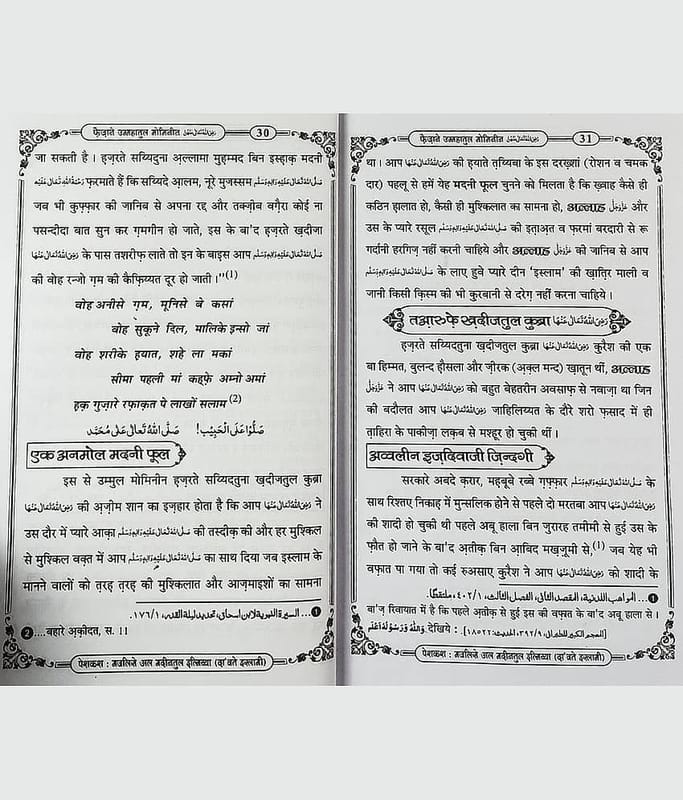 फ़ैज़ाने उम्महातुल मोमिनीन رَضِیَ اللّٰهُ تَعَالٰی عَنْهُنَّ 30
जा सकती है । हज़रते सय्यिदुना अ़ल्लामा मुह़म्मद बिन इस्ह़ाक़ मदनी
رَحْمَةُ اللّٰهِ تَعَالٰی عَلَيْه फ़रमाते हैं कि सय्यिदे आलम, नूरे मुजस्सम صَلَّى اللّٰهُ تَعَالٰى عَلَيْهِ وَاٰلِهٖ وَسَلَّم
जब भी कुफ़्फ़ार की जानिब से अपना रद्द और तक्ज़ीब वग़ैरा कोई ना
पसन्दीदा बात सुन कर ग़मगीन हो जाते, इस के बा'द हज़रते ख़दीजा
رَضِیَ اللّٰهُ تَعَالٰی عَنْهَا के पास तशरीफ़ लाते तो इन के बाइस आप صَلَّى اللّٰهُ تَعَالٰى عَلَيْهِ وَاٰلِهٖ وَسَلَّم
की वोह रन्जो ग़म की कैफ़िय्यत दूर हो जाती ।"(1)
वोह अनीसे ग़म, मूनिसे बे कसां
वोह सुकूने दिल, मालिके इन्सो जां
वोह शरीके हयात, शहे ला मकां
सीमा पहली मां कहफ़े अम्नो अमां
हक़ गुज़ारे रफ़ाक़त पे लाखों सलाम(2)
صَلُّوْا عَلَى الْحَبِيْب! صَلَّى اللّٰهُ تَعَالٰى عَلٰى مُحَمَّد
एक अनमोल मदनी फूल
इस से उम्मुल मोमिनीन हज़रते सय्यिदतुना ख़दीजतुल कुब्रा
رَضِیَ اللّٰهُ تَعَالٰی عَنْهَا की अ़ज़ीम शान का इज़हार होता है कि आप رَضِیَ اللّٰهُ تَعَالٰی عَنْهَا ने
उस दौर में प्यारे आका صَلَّى اللّٰهُ تَعَالٰى عَلَيْهِ وَاٰلِهٖ وَسَلَّم की तस्दीक़ की और हर मुश्किल
से मुश्किल वक़्त में आप صَلَّى اللّٰهُ تَعَالٰى عَلَيْهِ وَاٰلِهٖ وَسَلَّم का साथ दिया जब इस्लाम के
मानने वालों को त़रह़ त़रह़ की मुश्किलात और आज़माइशों का सामना
❶ ... السيرة النبوية لابن اسحاق، تحديد ليلة القدر، ١/١٧٦.
❷....बहारे अ़क़ीदत, स. 11
पेशकश : मजलिसे अल मदीनतुल इल्मिय्या (दा'वते इस्लामी)
फ़ैज़ाने उम्महातुल मोमिनीन رَضِیَ اللّٰهُ تَعَالٰی عَنْهُنَّ 31
था । आप رَضِیَ اللّٰهُ تَعَالٰی عَنْهَا की हयाते त़य्यिबा के इस दरख़्शां (रोशन व चमक
दार) पहलू से हमें येह मदनी फूल चुनने को मिलता है कि ख़्वाह कैसे ही
कठिन हालात हो, कैसी ही मुश्किलात का सामना हो, अल्लाह عَزَّوَجَلَّ और
उस के प्यारे रसूल صَلَّى اللّٰهُ تَعَالٰى عَلَيْهِ وَاٰلِهٖ وَسَلَّم की इत़ाअ़त व फ़रमां बरदारी से रू
गर्दानी हरगिज़ नहीं करनी चाहिये और अल्लाह عَزَّوَجَلَّ की जानिब से आप
صَلَّى اللّٰهُ تَعَالٰى عَلَيْهِ وَاٰلِهٖ وَسَلَّم के लाए हुवे प्यारे दीन 'इस्लाम' की ख़ात़िर माली व
जानी किसी क़िस्म की भी कुरबानी से दरेग़ नहीं करना चाहिये ।
तआ़रुफ़े ख़दीजतुल कुब्रा رَضِیَ اللّٰهُ تَعَالٰی عَنْهَا
हज़रते सय्यिदतुना ख़दीजतुल कुब्रा رَضِیَ اللّٰهُ تَعَالٰی عَنْهَا कुरैश की एक
बा हिम्मत, बुलन्द हौसला और ज़ीरक (अ़क़्ल मन्द) ख़ातून थीं, अल्लाह
عَزَّوَجَلَّ ने आप رَضِیَ اللّٰهُ تَعَالٰی عَنْهَا को बहुत बेहतरीन अवसाफ़ से नवाज़ा था जिन
की बदौलत आप رَضِیَ اللّٰهُ تَعَالٰی عَنْهَا जाहिलिय्यत के दौरे शरो फ़साद में ही
त़ाहिरा के पाकीज़ा लक़ब से मश्हूर हो चुकी थीं ।
अव्वलीन इज़दिवाजी ज़िन्दगी
सरकारे अबदे क़रार, महबूबे रब्बे ग़फ़्फ़ार صَلَّى اللّٰهُ تَعَالٰى عَلَيْهِ وَاٰلِهٖ وَسَلَّم के
साथ रिश्तए निकाह़ में मुन्सलिक होने से पहले दो मरतबा आप رَضِیَ اللّٰهُ تَعَالٰی عَنْهَا
की शादी हो चुकी थी पहले अबू हाला बिन ज़ुरारह तमीमी से हुई उस के
फ़ौत हो जाने के बा'द अ़तीक़ बिन आ़बिद मख़्ज़ूमी से,(1) जब येह भी
वफ़ात पा गया तो कई रुअसाए कुरैश ने आप رَضِیَ اللّٰهُ تَعَالٰی عَنْهَا को शादी के
❶ ... المواهب اللدنية، المقصد الثانى، الفصل الثالث، ١/٤٠٢، ملتقطًا.
बा'ज़ रिवायात में है कि पहले अ़तीक़ से हुई इस की वफ़ात के बा'द अबू हाला से ।
وَاللّٰهُ وَرَسُوْلُهٗ اَعْلَم देखिये : [المعجم الكبير للطبرانى، ٩/٣٩٢، الحديث: ١٨٥٢٢]
पेशकश : मजलिसे अल मदीनतुल इल्मिय्या (दा'वते इस्लामी)